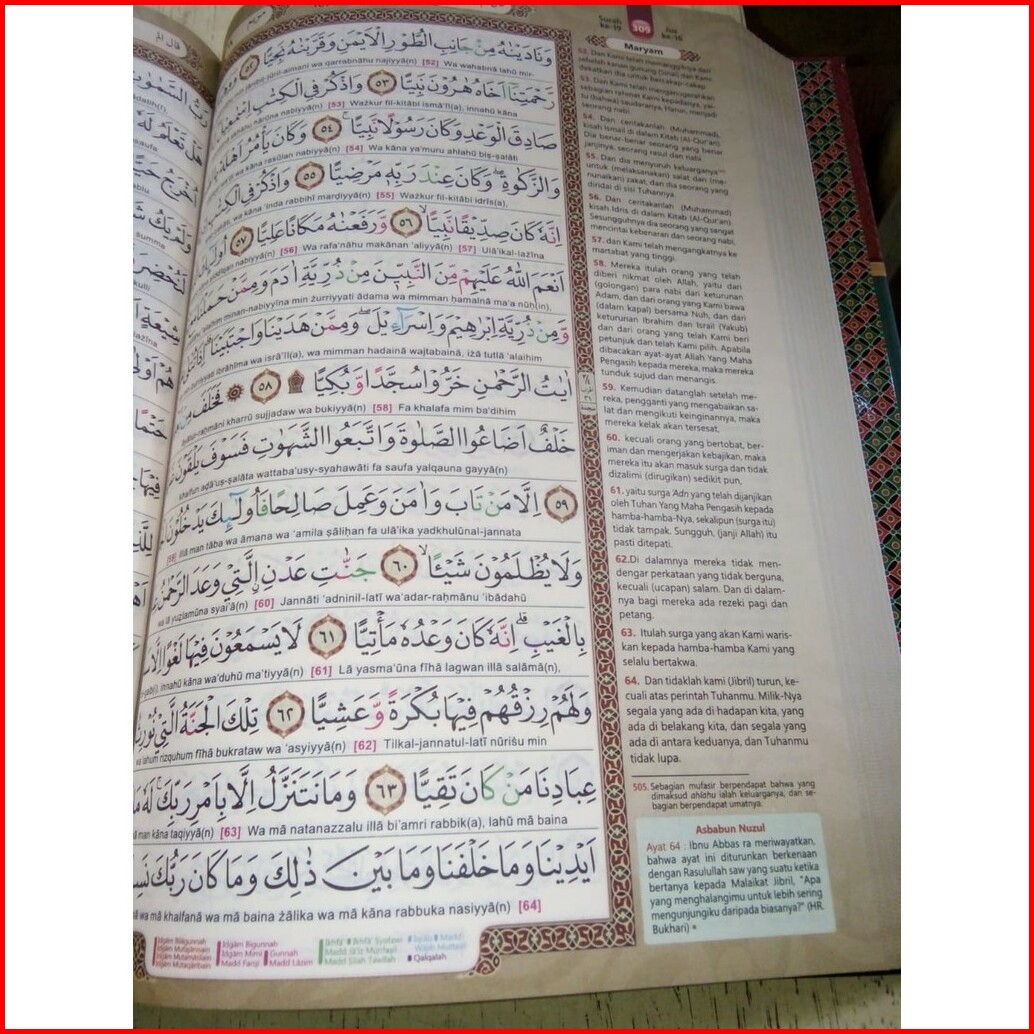 Surah ke-19
309
Juz ke-16
Maryam
وَنَادَيْنٰهُ مِنْ جَانِبِ الطُّوْرِ الْاَيْمَنِ وَقَرَّبْنٰهُ نَجِيًّا ٥٢
najiyyā(n) [52] Wa wahabnā lahū mir-
رَّحْمَتِنَآ اَخَاهُ هٰرُوْنَ نَبِيًّا ٥٣ وَاذْكُرْ فِى الْكِتٰبِ
hārūna nabiyyā(n) [53] Ważkur fil-kitābi ismā'īl(a), innahū kāna
صَادِقَ الْوَعْدِ وَكَانَ رَسُوْلًا نَّبِيًّا ٥٤ وَكَانَ يَأْمُرُ اَهْلَهٗ
wa kāna rasūlan nabiyyā(n) [54] Wa kāna ya'muru ahlahū biṣ-ṣalāti
وَالزَّكٰوةِۖ وَكَانَ عِنْدَ رَبِّهٖ مَرْضِيًّا ٥٥ وَاذْكُرْ فِى الْكِتٰبِ
wa kāna 'inda rabbihī marḍiyyā(n) [55] Ważkur fil-kitābi idrīs(a),
اِنَّهٗ كَانَ صِدِّيْقًا نَّبِيًّا ٥٦ وَّرَفَعْنٰهُ مَكَانًا عَلِيًّا ٥٧
nabiyyā(n) [56] Wa rafa'nāhu makānan 'aliyyā(n) [57] Ulā'ikal-lażīna
اَنْعَمَ اللّٰهُ عَلَيْهِمْ مِّنَ النَّبِيّٖنَ مِنْ ذُرِّيَّةِ اٰدَمَ وَمِمَّنْ حَمَلْنَا
minan-nabiyyīna min żurriyyati ādama wa mimman ḥamalnā ma'a nūḥ(in),
وَّمِنْ ذُرِّيَّةِ اِبْرٰهِيْمَ وَاِسْرَاۤءِيْلَۖ وَمِمَّنْ هَدَيْنَا وَاجْتَبَيْنَا
ibrāhīma wa isrā'īl(a), wa mimman hadainā wajtabainā, iżā tutlā 'alaihim
اٰيٰتُ الرَّحْمٰنِ خَرُّوْا سُجَّدًا وَّبُكِيًّا ۩ ٥٨ ۞ فَخَلَفَ
kharrū sujjadaw wa bukiyyā(n) [58] Fa khalafa mim ba'dihim
خَلْفٌ اَضَاعُوا الصَّلٰوةَ وَاتَّبَعُوا الشَّهَوٰتِ فَسَوْفَ يَلْقَوْنَ
khalfun aḍā'uṣ-ṣalāta wattaba'usy-syahawāti fa saufa yalqauna gayyā(n)
٥٩ اِلَّا مَنْ تَابَ وَاٰمَنَ وَعَمِلَ صَالِحًا فَاُولٰۤىِٕكَ يَدْخُلُوْنَ
[59] illā man tāba wa āmana wa 'amila ṣāliḥan fa ulā'ika yadkhulūnal-jannata
وَلَا يُظْلَمُوْنَ شَيْـًٔا ۙ ٦٠ جَنّٰتِ عَدْنِ ِۨالَّتِيْ وَعَدَ الرَّحْمٰنُ
wa lā yuẓlamūna syai'ā(n) [60] Jannāti 'adninil-latī wa'adar-raḥmānu 'ibādahū
بِالْغَيْبِۗ اِنَّهٗ كَانَ وَعْدُهٗ مَأْتِيًّا ٦١ لَا يَسْمَعُوْنَ فِيْهَا لَغْوًا
innahū kāna wa'duhū ma'tiyyā(n) [61] Lā yasma'ūna fīhā lagwan illā salāmā(n),
وَلَهُمْ رِزْقُهُمْ فِيْهَا بُكْرَةً وَّعَشِيًّا ٦٢ تِلْكَ الْجَنَّةُ الَّتِيْ
wa lahum rizquhum fīhā bukrataw wa 'asyiyyā(n) [62] Tilkal-jannatul-latī nūriṡu min
عِبَادِنَا مَنْ كَانَ تَقِيًّا ٦٣ وَمَا نَتَنَزَّلُ اِلَّا بِاَمْرِ رَبِّكَۚ
man kāna taqiyyā(n) [63] Wa mā natanazzalu illā bi'amri rabbik(a), lahū mā baina
اَيْدِيْنَا وَمَا خَلْفَنَا وَمَا بَيْنَ ذٰلِكَ وَمَا كَانَ رَبُّكَ
wa mā khalfanā wa mā baina żālika wa mā kāna rabbuka nasiyyā(n) [64]
Idgām Bilāgunnah
Idgām Mutajānisain
Idgām Mutamāṡilain
Idgām Mutaqāribain
Idgām Bigunnah
Idgām Mimī
Gunnah
Madd Farqī
Madd Lāzim
Ikhfā'
Ikhfā' Syafawi
Madd Jā'iz Munfaṣil
Madd Ṣilah Ṭawīlah
Wājib Muttaṣil
Qalqalah
52. Dan Kami telah memanggilnya dari
sebelah kanan gunung (Sinai) dan Kami
dekatkan dia untuk bercakap-cakap.
53. Dan Kami telah menganugerahkan
sebagian rahmat Kami kepadanya, yai-
tu (bahwa) saudaranya, Harun, menjadi
seorang nabi.
54. Dan ceritakanlah (Muhammad),
kisah Ismail di dalam Kitab (Al-Qur'an).
Dia benar-benar seorang yang benar
janjinya, seorang rasul dan nabi.
55. Dan dia menyuruh keluarganya
untuk (melaksanakan) salat dan (me-
nunaikan) zakat, dan dia seorang yang
diridai di sisi Tuhannya.
56. Dan ceritakanlah (Muhammad)
kisah Idris di dalam Kitab (Al-Qur'an).
Sesungguhnya dia seorang yang sangat
mencintai kebenaran dan seorang nabi,
57. dan Kami telah mengangkatnya ke
martabat yang tinggi.
58. Mereka itulah orang yang telah
diberi nikmat oleh Allah, yaitu dari
(golongan) para nabi dari keturunan
Adam, dan dari orang yang Kami bawa
(dalam kapal) bersama Nuh, dan dari
keturunan Ibrahim dan Israil (Yakub)
dan dari orang yang telah Kami beri
petunjuk dan telah Kami pilih. Apabila
dibacakan ayat-ayat Allah Yang Maha
Pengasih kepada mereka, maka mereka
tunduk sujud dan menangis.
59. Kemudian datanglah setelah me-
reka, pengganti yang mengabaikan sa-
lat dan mengikuti keinginannya, maka
mereka kelak akan tersesat.
60. kecuali orang yang bertobat, ber-
iman dan mengerjakan kebajikan, maka
mereka itu akan masuk surga dan tidak
dizalimi (dirugikan) sedikit pun,
61. yaitu surga 'Adn yang telah dijanjikan
oleh Tuhan Yang Maha Pengasih kepada
hamba-hamba-Nya, sekalipun (surga itu)
tidak tampak. Sungguh, (janji Allah) itu
pasti ditepati.
62.Di dalamnya mereka tidak men-
dengar perkataan yang tidak berguna,
kecuali (ucapan) salam. Dan di dalam-
nya bagi mereka ada rezeki pagi dan
petang.
63. Itulah surga yang akan Kami waris-
kan kepada hamba-hamba Kami yang
selalu bertakwa.
64. Dan tidaklah kami (Jibril) turun, ke-
cuali atas perintah Tuhanmu. Milik-Nya
segala yang ada di hadapan kita, yang
ada di belakang kita, dan segala yang
ada di antara keduanya, dan Tuhanmu
tidak lupa.
505. Sebagian mufasir berpendapat bahwa yang
dimaksud ahlahu ialah keluarganya, dan se-
bagian berpendapat umatnya.
Asbabun Nuzul
Ayat 64 : Ibnu Abbas ra meriwayatkan,
bahwa ayat ini diturunkan berkenaan
dengan Rasulullah saw yang suatu ketika
bertanya kepada Malaikat Jibril, "Apa
yang menghalangimu untuk lebih sering
mengunjungiku daripada biasanya?" (HR.
Bukhari)